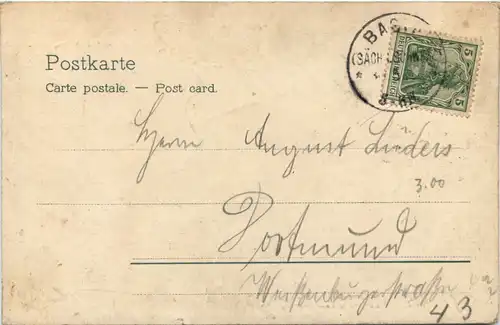 Postkarte
Carte postale. — Post card.
BAD
(SACH
5
5
Herrn August Lüders
3.00
Dortmund
Weißenburgerstraße
43